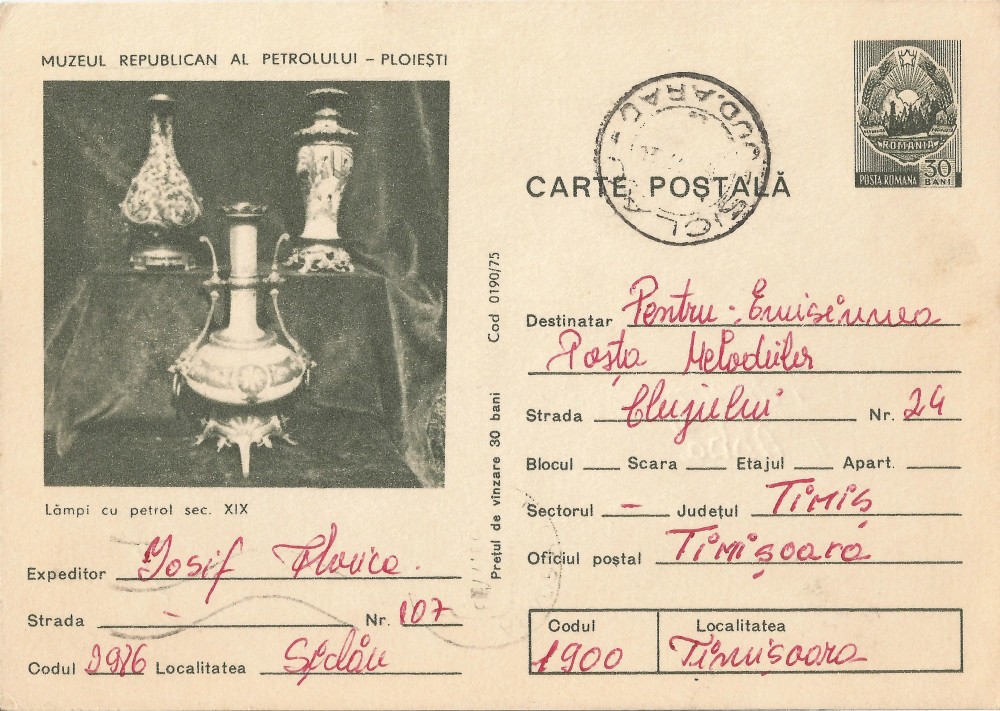 MUZEUL REPUBLICAN AL PETROLULUI – PLOIEȘTI
Lămpi cu petrol sec. XIX
Expeditor Iosif Florica.
Strada - Nr. 107
Codul 2976 Localitatea
Cod 0190/75
Prețul de vînzare 30 bani
JUD. ARAD
ROMANIA
POSTA ROMANA 30 BANI
CARTE POȘTALĂ
Destinatar Pentru: Emisiunea
Poșta Melodiilor
Strada Clujului Nr. 24
Blocul Scara Etajul Apart.
Sectorul - Județul TIMIȘ
Oficiul poștal TIMIȘOARA
Codul Localitatea
1900 Timișoara